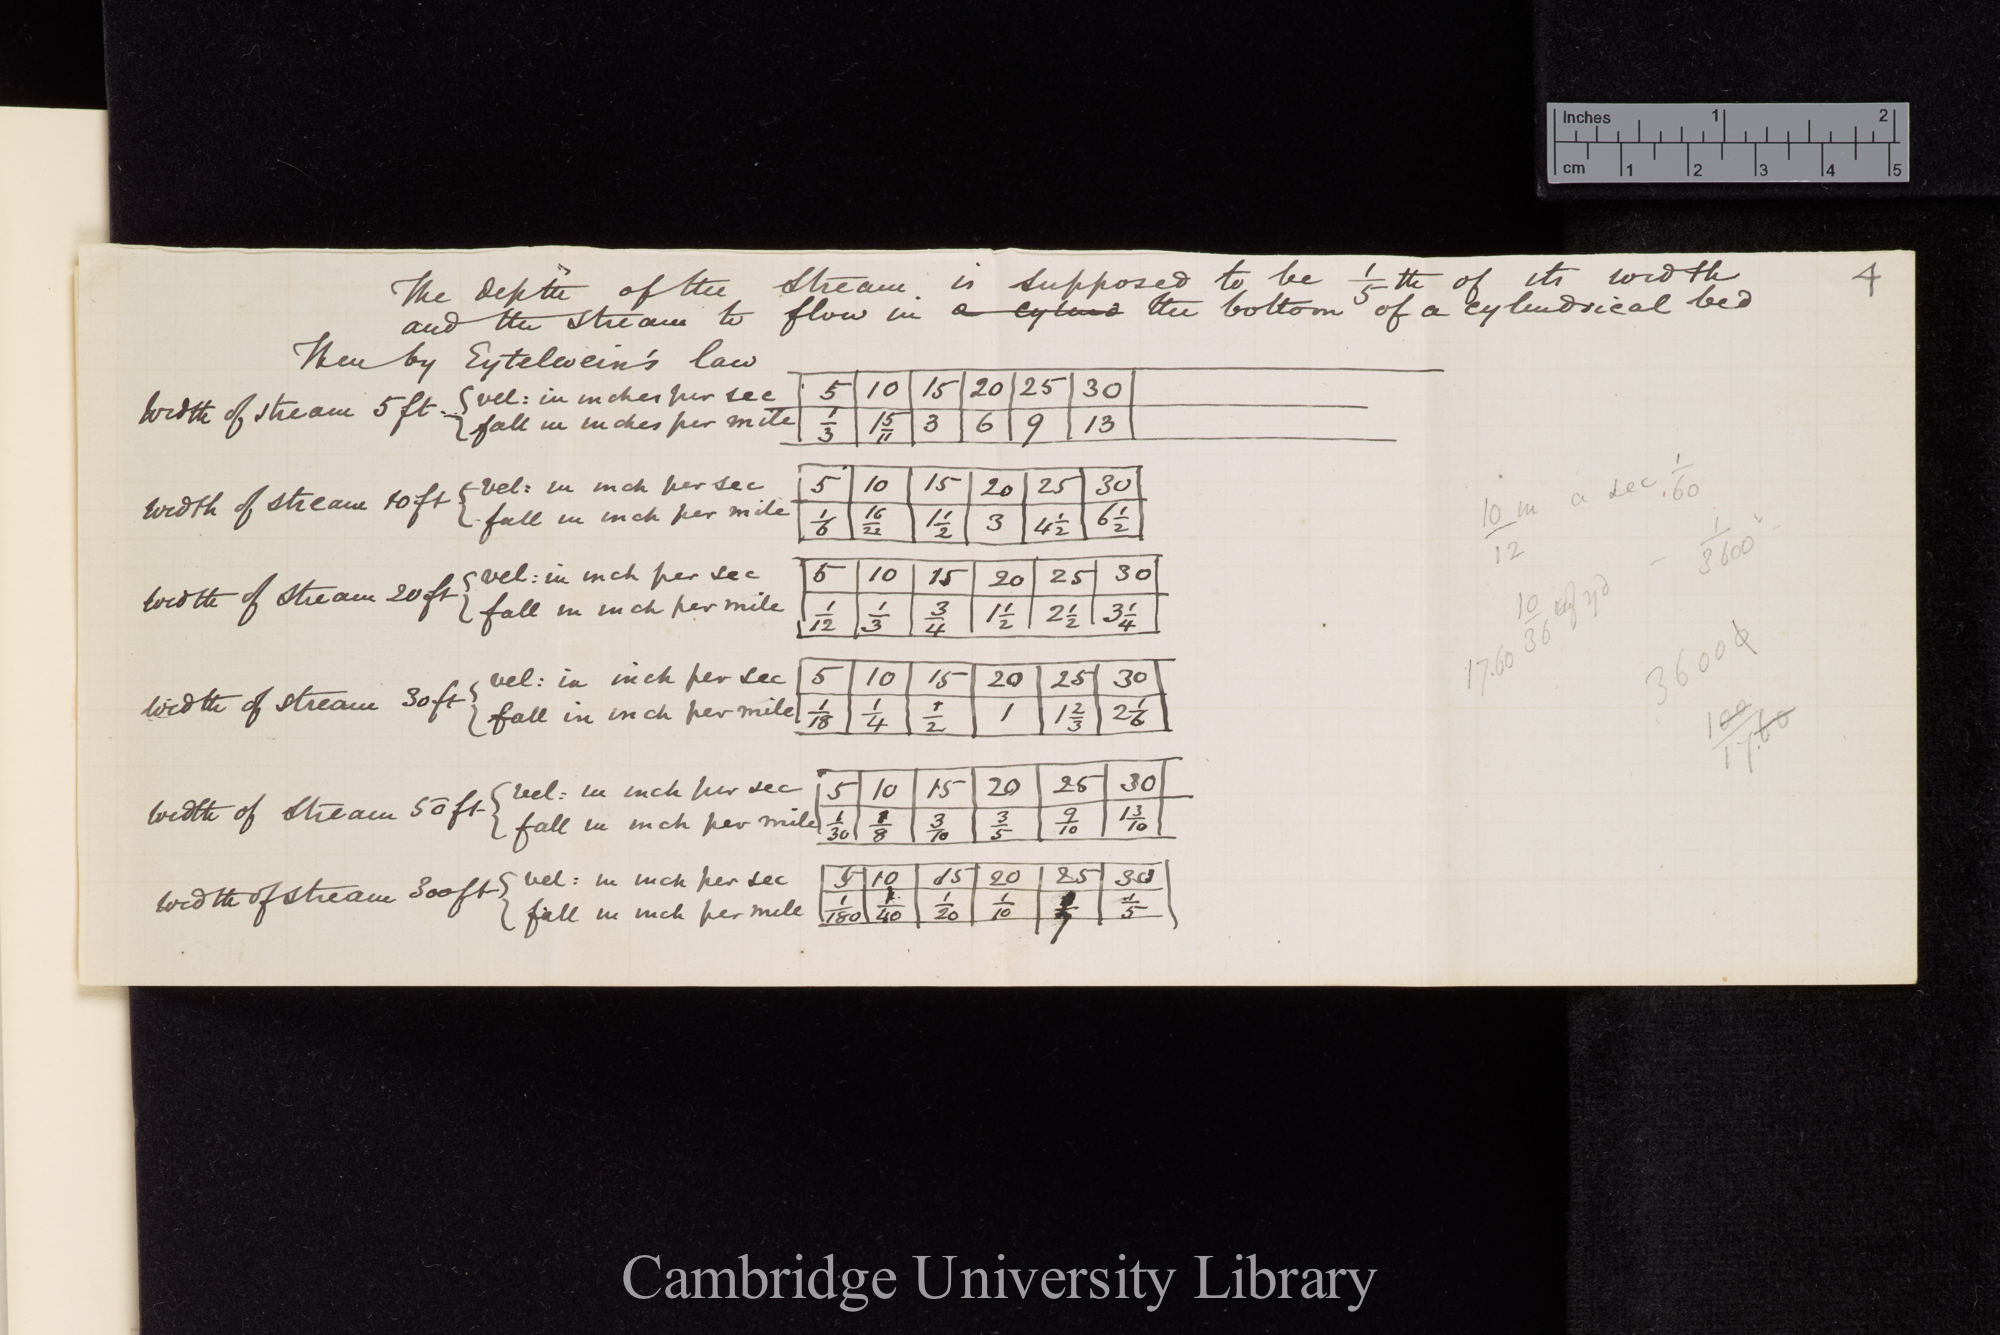 Inches 1 2
cm 1 2 3 4 5
4
The depth of the stream is supposed to be 1/5 th of its width
and the stream to flow in a cylind the bottom of a cylindrical bed
Then by Eytelwein's law
width of stream 5 ft { vel: in inches per sec 5 10 15 20 25 30
fall in inches per mile 1/3 15/11 3 6 9 13
width of stream 10 ft { vel: in inch per sec 5 10 15 20 25 30
fall in inch per mile 1/6 16/22 1 1/2 3 4 1/2 6 1/2
width of stream 20 ft { vel: in inch per sec 5 10 15 20 25 30
fall in inch per mile 1/12 1/3 3/4 1 1/2 2 1/2 3 1/4
width of stream 30 ft { vel: in inch per sec 5 10 15 20 25 30
fall in inch per mile 1/18 1/4 1/2 1 1 2/3 2 1/6
width of stream 50 ft { vel: in inch per sec 5 10 15 20 25 30
fall in inch per mile 1/30 1/8 3/10 3/5 9/10 1 3/10
width of stream 300 ft { vel: in inch per sec 5 10 15 20 25 30
fall in inch per mile 1/180 1/40 1/20 1/10 1/7 1/5
10/12 in a sec. 1/60
1/3600
10/36 of yd
1760
36000
100/1760
Cambridge University Library